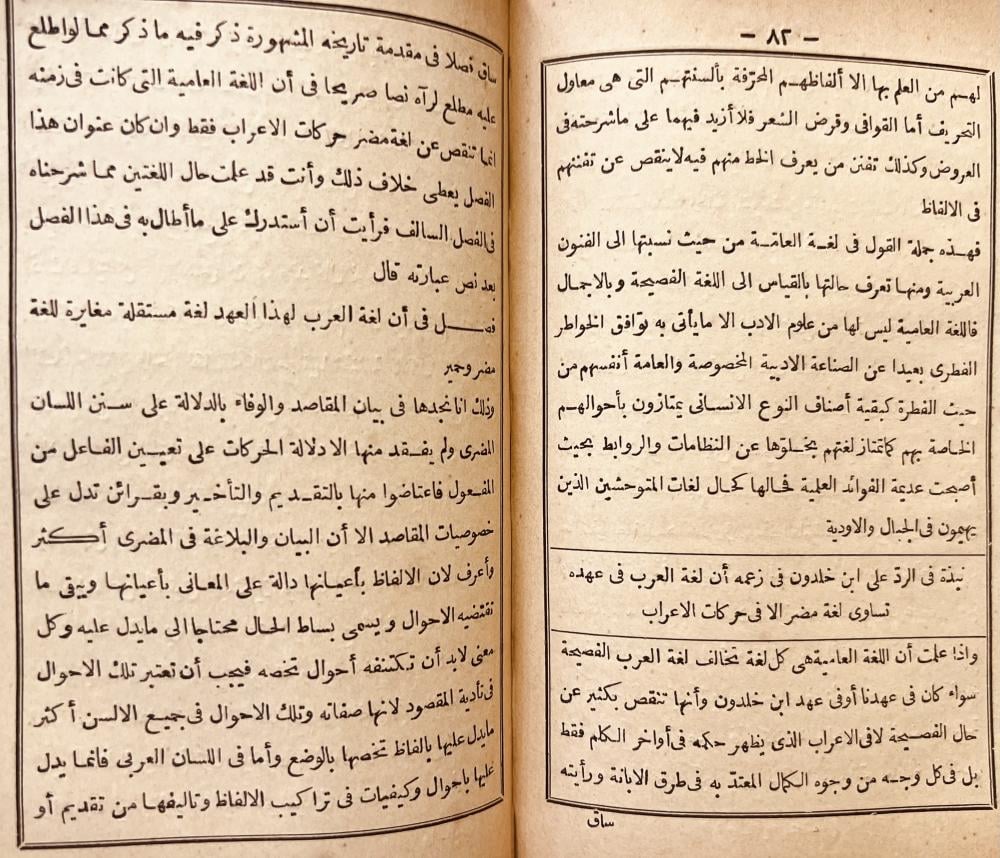 — ٨٢ —
لهم من العلم بها الا ألفاظهم المحرّفة بألسنتهم التى هى معاول
التحريف أما القوافى وقرض الشعر فلا أزيد فيهما على ماشرحته فى
العروض وكذلك تفنن من يعرف الخط منهم فيه لاينقص عن تفننهم
فى الالفاظ
فهذه جملة القول فى لغة العامّة من حيث نسبتها الى الفنون
العربية ومنها تعرف حالتها بالقياس الى اللغة الفصيحة وبالاجمال
فاللغة العامية ليس لها من علوم الادب الا مايأتى به توافق الخواطر
الفطرى بعيدا عن الصناعة الادبية المخصوصة والعامة أنفسهم من
حيث الفطرة كبقية أصناف النوع الانسانى يمتازون بأحوالهم
الخاصة بهم كماتمتاز لغتهم بخلوّها عن النظامات والروابط بحيث
أصبحت عديمة الفوائد العلمية فحالها كحال لغات المتوحشين الذين
يهيمون فى الجبال والاودية
نبذة فى الردّ على ابن خلدون فى زعمه أن لغة العرب فى عهده
تساوى لغة مضر الا فى حركات الاعراب
واذا علمت أن اللغة العامية هى كل لغة تخالف لغة العرب الفصيحة
سواء كان فى عهدنا أو فى عهد ابن خلدون وأنها تنقص بكثير عن
حال الفصيحة لافى الاعراب الذى يظهر حكمه فى أواخر الكلم فقط
بل فى كل وجه من وجوه الكمال المعتدّ به فى طرق الابانة ورأيته
ساق
ساق فصلا فى مقدمة تاريخه المشهورة ذكر فيه ماذكر مما لواطلع
عليه مطلع لرآه نصا صريحا فى أن اللغة العامية التى كانت فى زمنه
انما تنقص عن لغة مضر حركات الاعراب فقط وان كان عنوان هذا
الفصل يعطى خلاف ذلك وأنت قد علمت حال اللغتين مما شرحناه
فى الفصل السالف فرأيت أن أستدرك على ماأطال به فى هذا الفصل
بعد نص عبارته قال
فصل فى أن لغة العرب لهذا العهد لغة مستقلة مغايرة للغة
مضر وحمير
وذلك انانجدها فى بيان المقاصد والوفاء بالدلالة على سنن اللسان
المضرى ولم يفقد منها الا دلالة الحركات على تعيين الفاعل من
المفعول فاعتاضوا منها بالتقديم والتأخير وبقرائن تدل على
خصوصيات المقاصد الا أن البيان والبلاغة فى المضرى أكثر
وأعرف لان الالفاظ بأعيانها دالة على المعانى بأعيانها ويبقى ما
تقتضيه الاحوال ويسمى بساط الحال محتاجا الى مايدل عليه وكل
معنى لابد أن تكتنفه أحوال تخصه فيجب أن تعتبر تلك الاحوال
فى تأدية المقصود لانها صفاته وتلك الاحوال فى جميع الالسن أكثر
مايدل عليها بالفاظ تخصها بالوضع وأما فى اللسان العربى فانما يدل
عليها باحوال وكيفيات فى تراكيب الالفاظ وتاليفها من تقديم أو